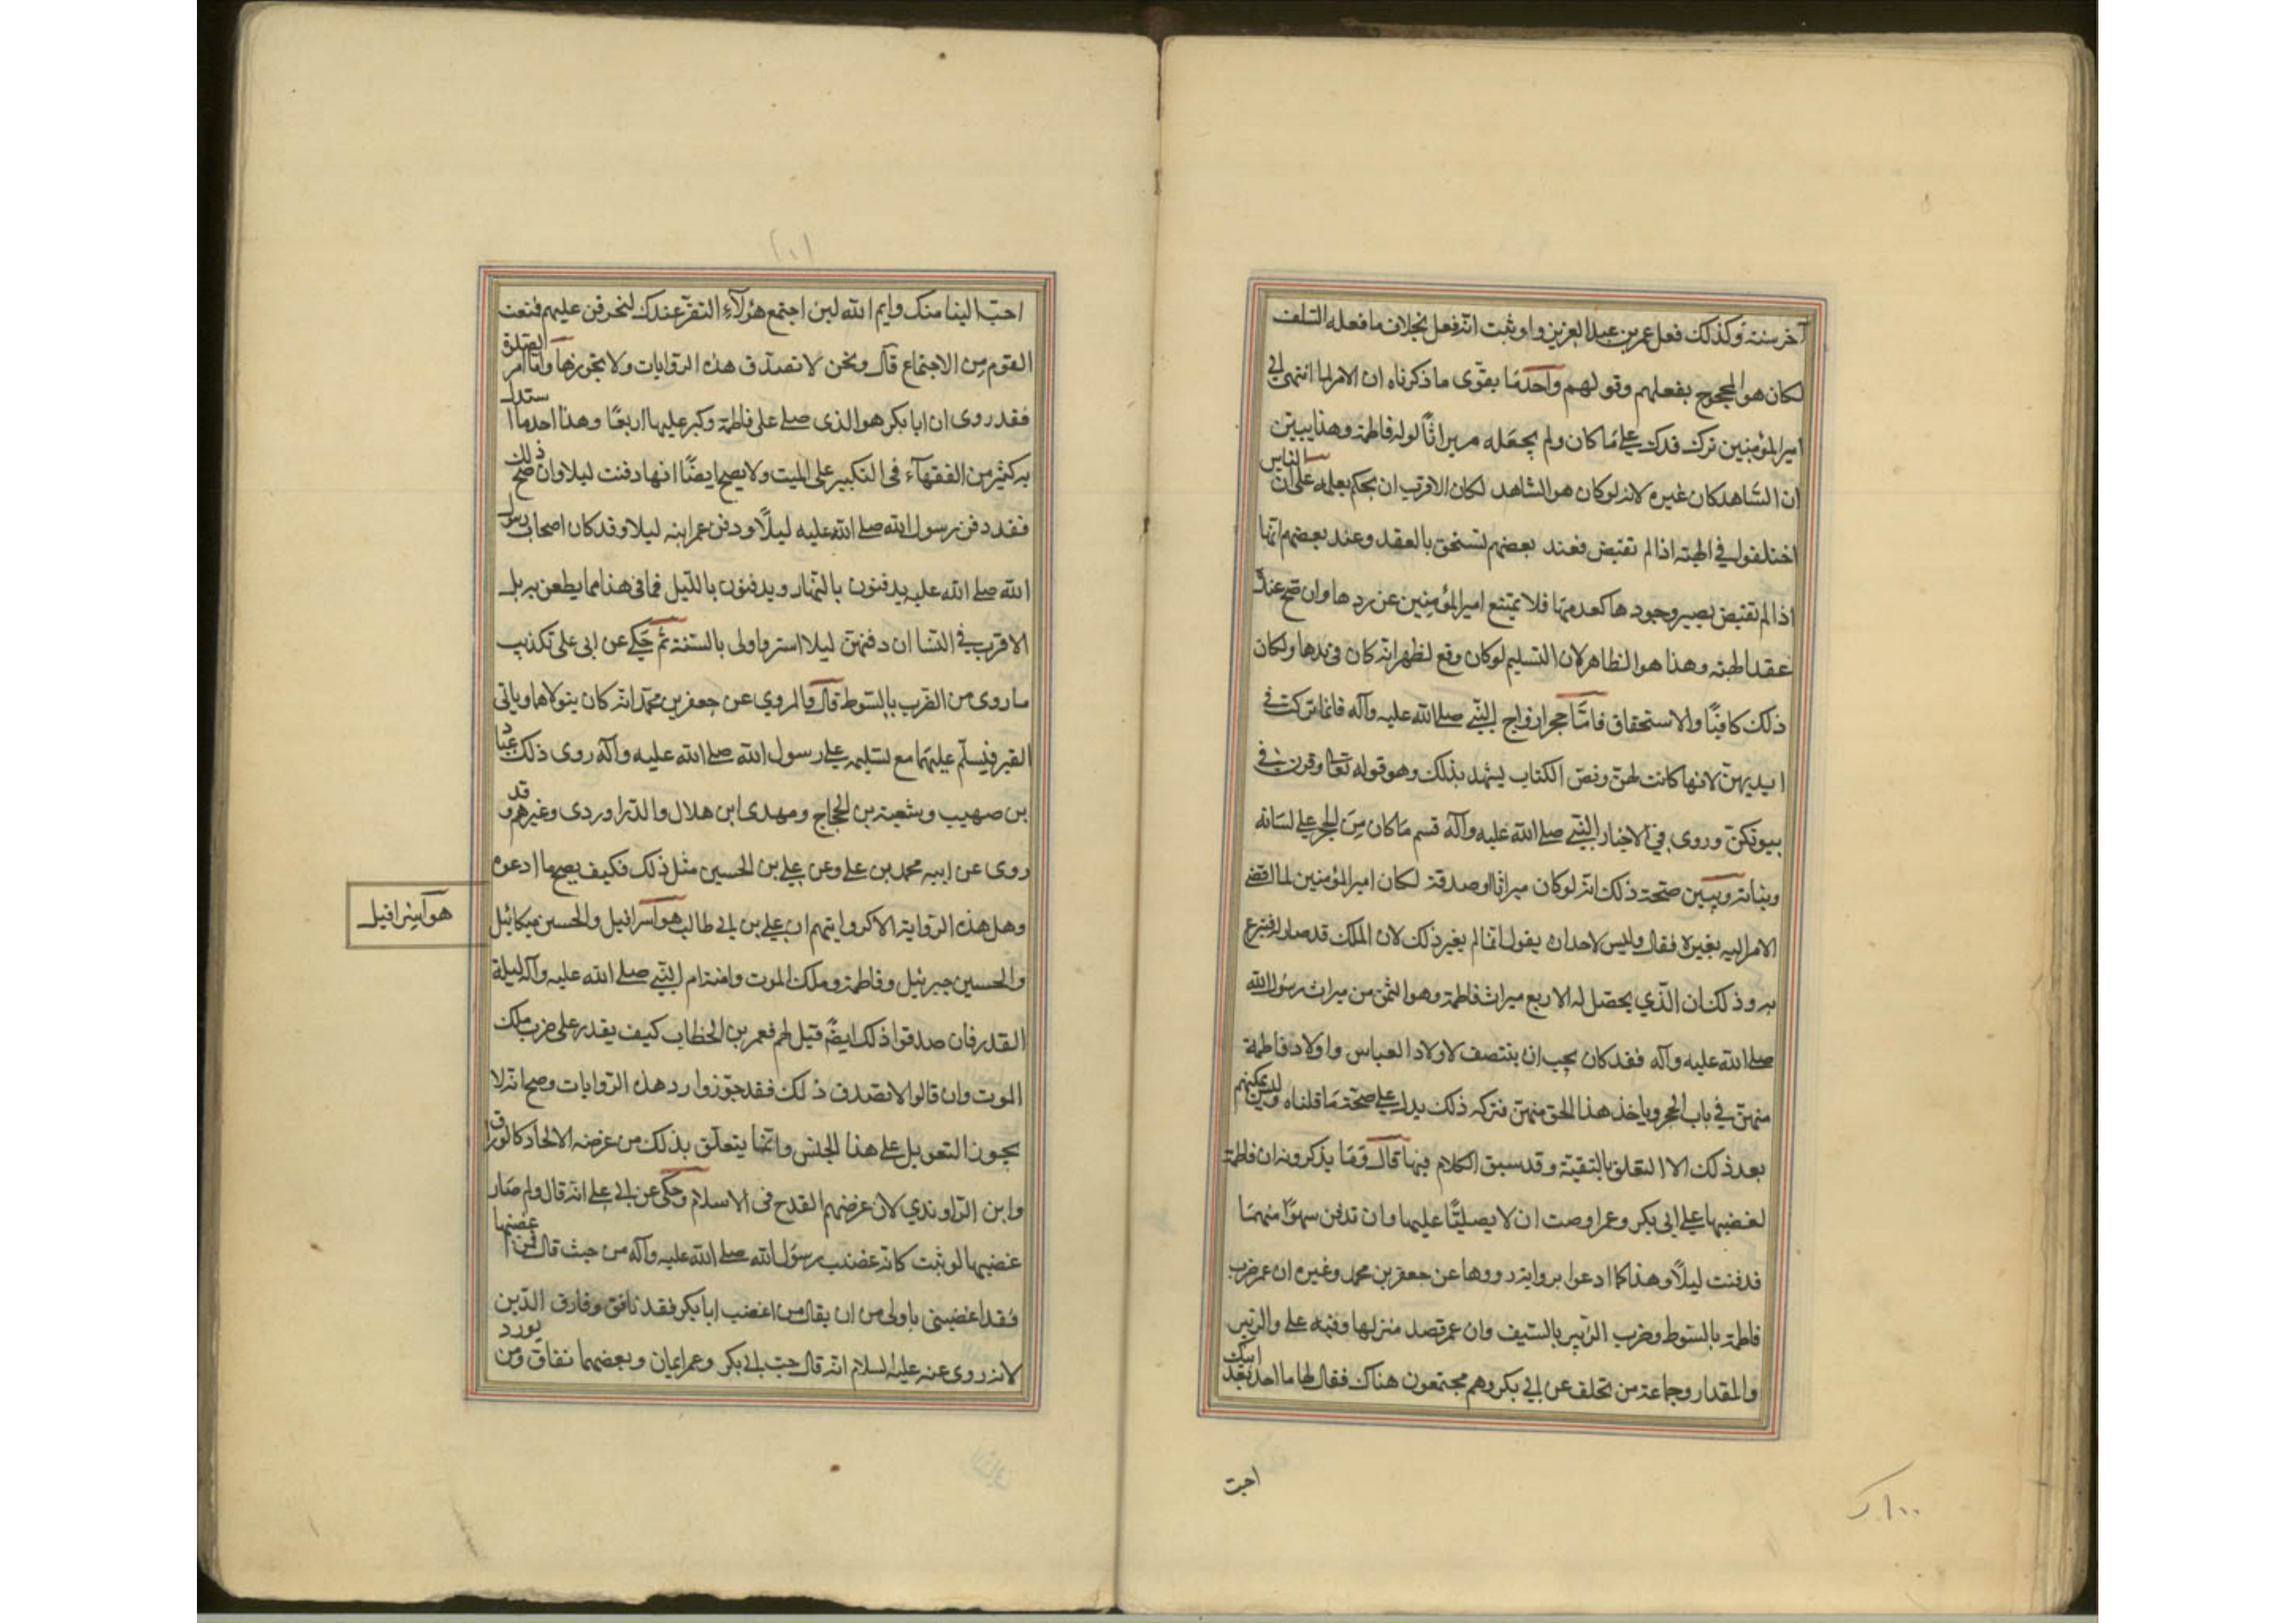 آخر سنة وكذلك فعل عمر بن عبد العزيز ولو ثبت انه فعل بخلاف ما فعله السلف
لكان هو المحجوج بفعلهم وقولهم واحد ما يقوّى ما ذكرناه ان الامر لما انتهى الى
امير المؤمنين ترك فدك على ما كان ولم يجعله ميراثاً لولد فاطمة وهذا يبيّن
ان الشاهد كان غيره لانه لو كان هو الشاهد لكان الاقرب ان يحكم بعلمه على ان الناس
اختلفوا في الهبة اذا لم تقبض فعند بعضهم تستحق بالعقد وعند بعضهم انها
اذا لم تقبض يصير وجودها كعدمها فلا يمتنع امير المؤمنين عن ردها وان صح عنده
عقد الهبة وهذا هو الظاهر لان التسليم لو كان وقع لظهر انه كان في يدها ولكان
ذلك كافيًا والاستحقاق فامّا حجر ازواج النبي صلى الله عليه وآله فانما تركت في
ايديهنّ لانها كانت لهنّ ونصّ الكتاب يشهد بذلك وهو قوله تعالى وقرن في
بيوتكنّ وروى في الاخبار النبي صلى الله عليه وآله قسم ما كان من الحجر على نسائه
وبناته ويبيّن صحّة ذلك انه لو كان ميراثا او صدقة لكان امير المؤمنين لما افضى
الامر اليه يغيره فقال وليس لاحد ان يقول انما لم يغير ذلك لان الملك قد صار له فتبرع
به وذلك ان الّذي يحصّل له الا ربع ميراث فاطمة وهو الثمن من ميراث رسول الله
صلى الله عليه وآله فقد كان يجب ان ينتصف لاولاد العباس واولاد فاطمة
منهنّ في باب الحجر وياخذ هذا الحق منهنّ فتركه ذلك يدل على صحّة ما قلناه وليس يمكنهم
بعد ذلك الا التعلق بالتقيّة وقد سبق الكلام فيها قال وممّا يذكرونه ان فاطمة
لغضبها على ابى بكر وعمر اوصت ان لا يصليّا عليها وان تدفن سرًا منهما
فدفنت ليلًا وهذا كما ادعوا برواية رووها عن جعفر بن محمد وغيره ان عمر ضرب
فاطمة بالسّوط وضرب الزّبير بالسّيف وان عمر قصد منزلها وفيه على والزّبير
والمقداد وجماعة من تخلف عن ابي بكر وهم مجتمعون هناك فقال لها ما احد بعد ابيك
احبّ
١٠٠
احبّ الينا منك وايم الله لين اجتمع هؤلآء النفر عندك لنحرقن عليهم فنعت
القوم من الاجتماع قال ونحن لا نصدّق هذه الروايات ولا نجوزها وامّا امر الصلوة
فقد روى ان ابا بكر هو الذى صلى على فاطمة وكبر عليها اربعًا وهذا احد ما استدل
به كثير من الفقهآء فى التكبير على الميت ولا يصح ايضًا انها دفنت ليلا وان صح ذلك
فقد دفن رسول الله صلى الله عليه ليلًا ودفن عمر ابنه ليلا وقد كان اصحاب رسول
الله صلى الله عليه يدفنون بالنّهار ويدفنون باللّيل فما فى هذا مما يطعن به بل
الاقرب في النسا ان دفنهنّ ليلا استر واولى بالسّنة ثم حكى عن ابى على تكذيب
ما روى من الضّرب بالسّوط قال والمروي عن جعفر بن محمّد انّه كان يتولاهما وياتى
القبر فيسلّم عليهما مع تسليمه على رسول الله صلى الله عليه وآله روى ذلك عبّاد
بن صهيب وشعبة بن الحجاج ومهدى ابن هلال والدّراوردى وغيرهم وقد
روى عن ابيه محمد بن على وعن على بن الحسين مثل ذلك فكيف يصح ما ادعوه
وهل هذه الرّواية الا كروايتهم ان على بن ابى طالب هو اسرافيل والحسن ميكائيل
هو آسرافيل
والحسين جبرئيل وفاطمة وملك الموت وامنة ام النّبي صلى الله عليه وآله ليلة
القدر فان صدقوا ذلك ايضًا قيل لهم فعمر بن الخطاب كيف يقدر على ضرب ملك
الموت وان قالوا لا نصدق ذلك فقد جوّزوا رد هذه الرّوايات وصح انه لا
يجوز التعويل على هذا الجنس وانّما يتعلّق بذلك من غرضه الالحاد كالورّاق
وابن الرّاوندي لان غرضهم القدح فى الاسلام وحكى عن ابى على انّه قال ولم صار
غضبها لو ثبت كانّه غضب رسول الله صلى الله عليه وآله من حيث قال فمن اغضبها
فقد اغضبنى باولى من ان يقال من اغضب ابا بكر فقد نافق وفارق الدّين
لانه روى عنه عليه السلام انه قال حبّ ابى بكر وعمر ايمان وبغضهما نفاق ومن يورد